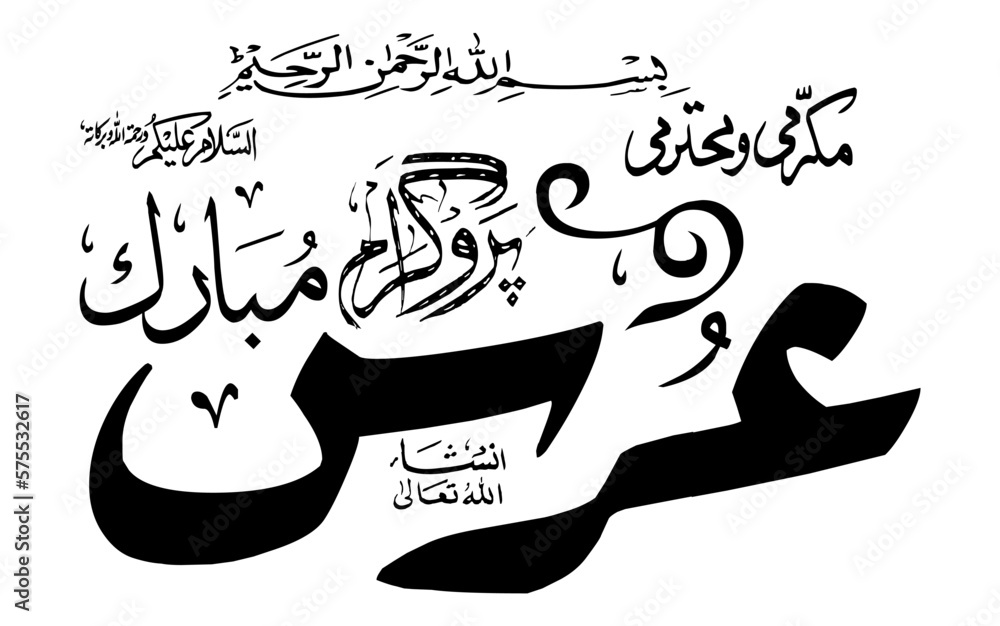 بِسْمِ اللهِ الرَّحْمٰنِ الرَّحِیْمِ
مکرّمی و محترمی
السَّلام علیکم ورحمۃ اللہ وبرکاتہ
عُرس
پروگرام
مُبارک
انشاء
اللهُ تعالیٰ
Adobe Stock | #575532617